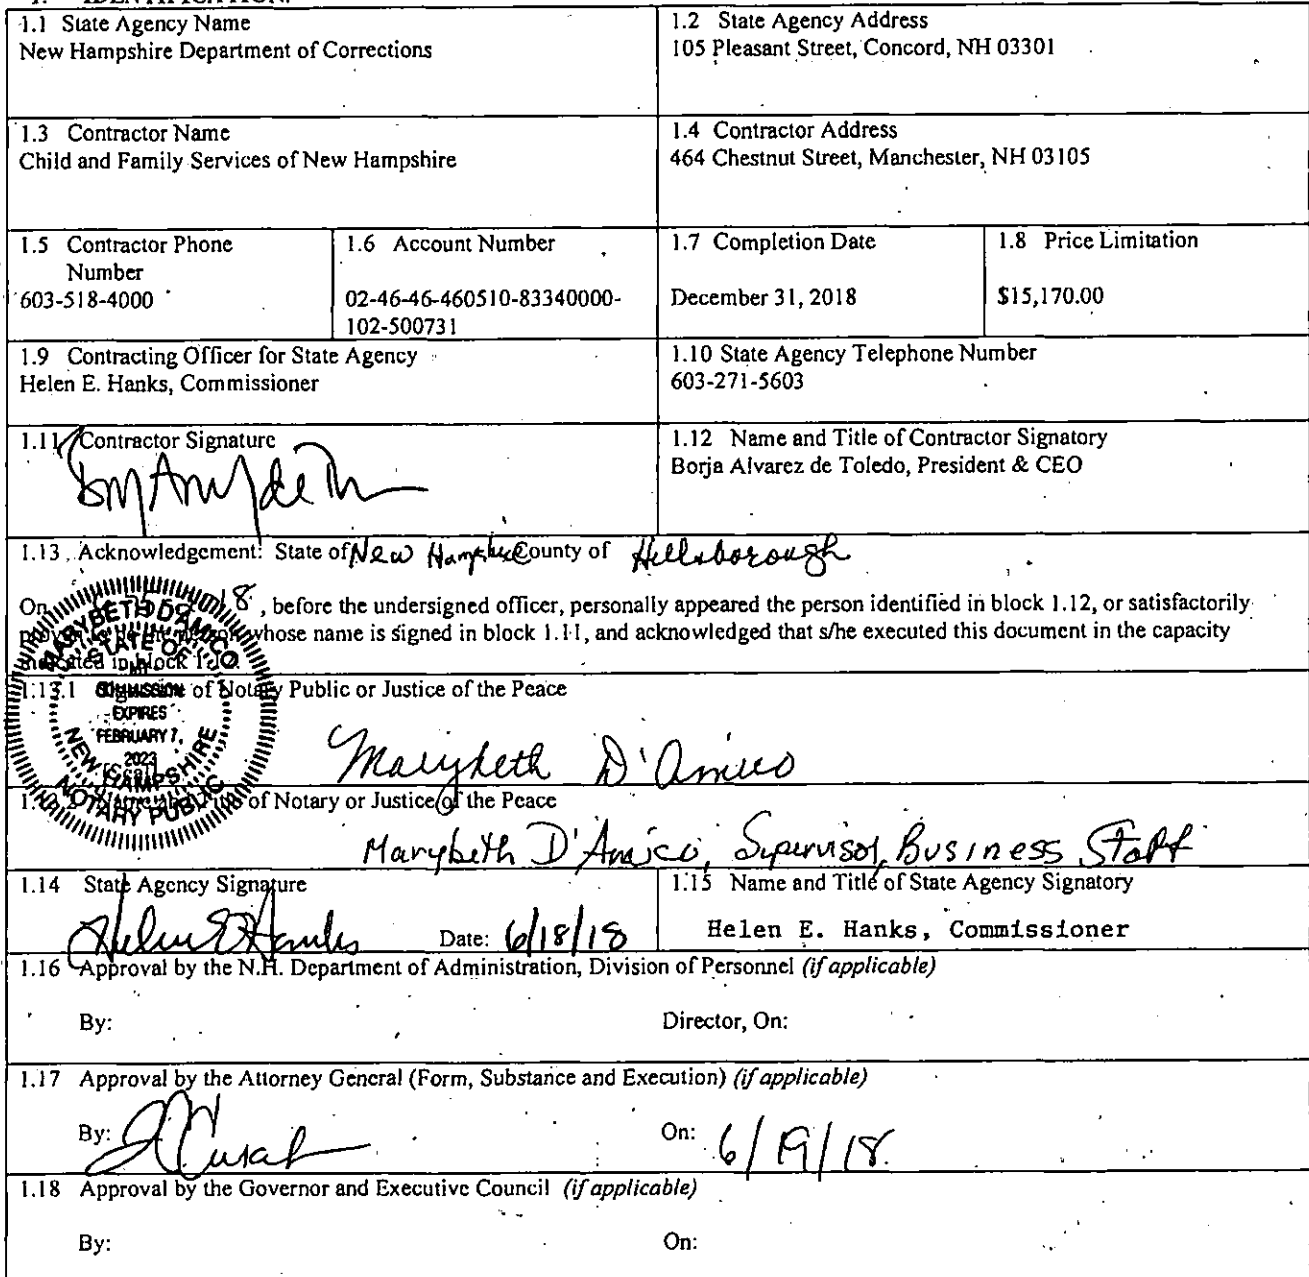 1. IDENTIFICATION.
1.1 State Agency Name
New Hampshire Department of Corrections
1.2 State Agency Address
105 Pleasant Street, Concord, NH 03301
1.3 Contractor Name
Child and Family Services of New Hampshire
1.4 Contractor Address
464 Chestnut Street, Manchester, NH 03105
1.5 Contractor Phone
Number
603-518-4000
1.6 Account Number
02-46-46-460510-83340000-
102-500731
1.7 Completion Date
December 31, 2018
1.8 Price Limitation
$15,170.00
1.9 Contracting Officer for State Agency
Helen E. Hanks, Commissioner
1.10 State Agency Telephone Number
603-271-5603
1.11 Contractor Signature
1.12 Name and Title of Contractor Signatory
Borja Alvarez de Toledo, President & CEO
1.13 Acknowledgement: State of New Hampshire County of Hillsborough
On 18, before the undersigned officer, personally appeared the person identified in block 1.12, or satisfactorily
whose name is signed in block 1.11, and acknowledged that s/he executed this document in the capacity
indicated in block
MARYBETH D'AMICO
STATE OF
MY
COMMISSION
EXPIRES
FEBRUARY 7,
2023
NEW HAMPSHIRE
NOTARY PUBLIC
1.13.1 of Notary Public or Justice of the Peace
Marybeth D'Amico
of Notary or Justice of the Peace
Marybeth D'Amico, Supervisor, Business Staff
1.14 State Agency Signature
Helen E Hanks Date: 6/18/18
1.15 Name and Title of State Agency Signatory
Helen E. Hanks, Commissioner
1.16 Approval by the N.H. Department of Administration, Division of Personnel (if applicable)
By: Director, On:
1.17 Approval by the Attorney General (Form, Substance and Execution) (if applicable)
By: On: 6/19/18
1.18 Approval by the Governor and Executive Council (if applicable)
By: On: